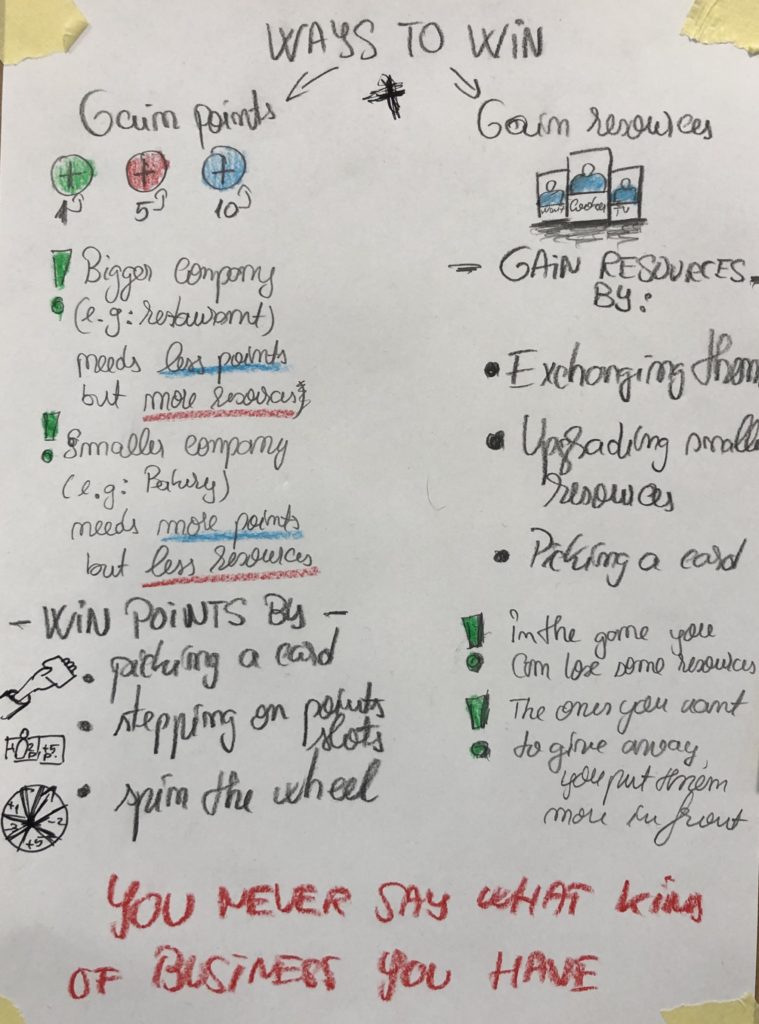 WAYS TO WIN
+
Gain points
+ + +
1 5 10
! Bigger company
(e.g: restaurant)
needs less points
but more resources
! Smaller company
(e.g:
needs more points
but less resources
- WIN POINTS BY -
• picking a card
• stepping on points
slots
• spin the wheel
+5
-2
Gain resources
Cooker TV
- GAIN RESOURCES
BY:
• Exchanging them
• Upgrading smalle
resources
• Picking a card
! in the game you
can lose some resources
! The ones you want
to give away,
you put them
more in front
YOU NEVER SAY WHAT kind
OF BUSINESS YOU HAVE